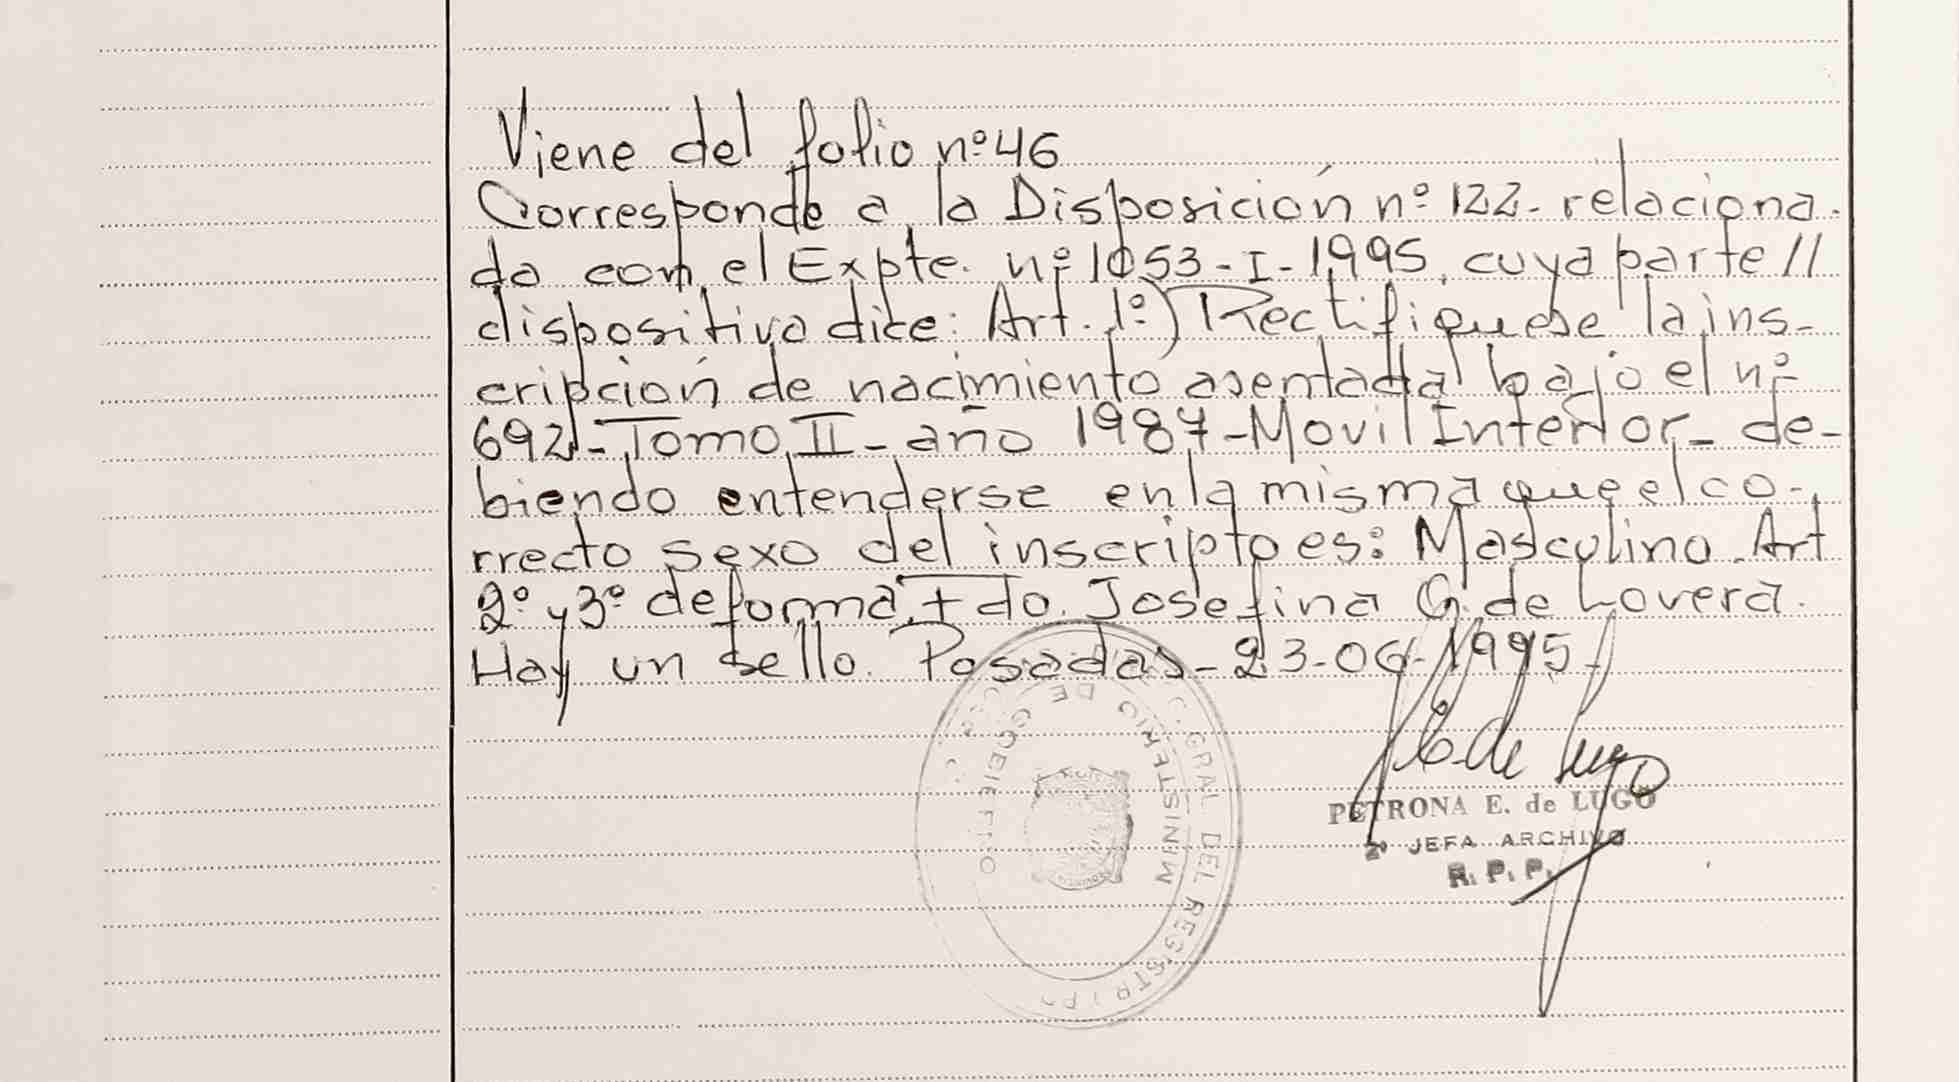 Viene del folio nº 46
Corresponde a la Disposición nº 122- relaciona-
da con el Expte. nº 1053-I-1995, cuya parte //
dispositiva dice: Art. 1º) Rectifiquese la ins-
cripción de nacimiento asentada bajo el nº
692-Tomo II-año 1987-Movil Interior- de-
biendo entenderse en la misma que el co-
rrecto sexo del inscripto es: Masculino. Art
2º y 3º de forma. Fdo. Josefina G. de Lovera.
Hay un sello. Posadas-23-06-1995-
E de Lugo
PETRONA E. de LUGO
2º JEFA ARCHIVO
R. P. P.
GRAL DEL REGISTRO
MINISTERIO DE GOBIERNO